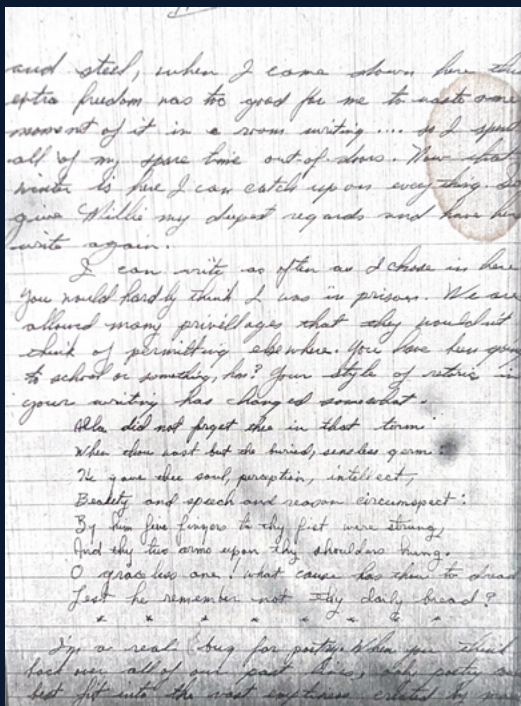 and steel, when I came down here this
extra freedom was too good for me to waste one
moment of it in a room writing.... so I spent
all of my spare time out-of-doors. Now that
winter is here I can catch up on everything. So
give Millie my deepest regards and have her
write again.
I can write as often as I chose in here
You would hardly think I was in prison. We are
allowed many privillages that they wouldn't
think of permitting elsewhere. You have been going
to school or something, has? Your style of retoric in
your writing has changed somewhat.
Alla did not forget thee in that term
When thou wast but the buried, sensless germ:
He gave thee soul, perception, intellect,
Beauty and speech and reason circumspect:
By him five fingers to thy fist were strung,
And thy two arms upon thy shoulders hung.
O graceless one! what cause has thou to dread
Lest he remember not thy daily bread?
* * * * * * * *
I'm a real bug for poetry. When you think
back over all of our past lives, only poetry can
best fit into the vast emptiness created by